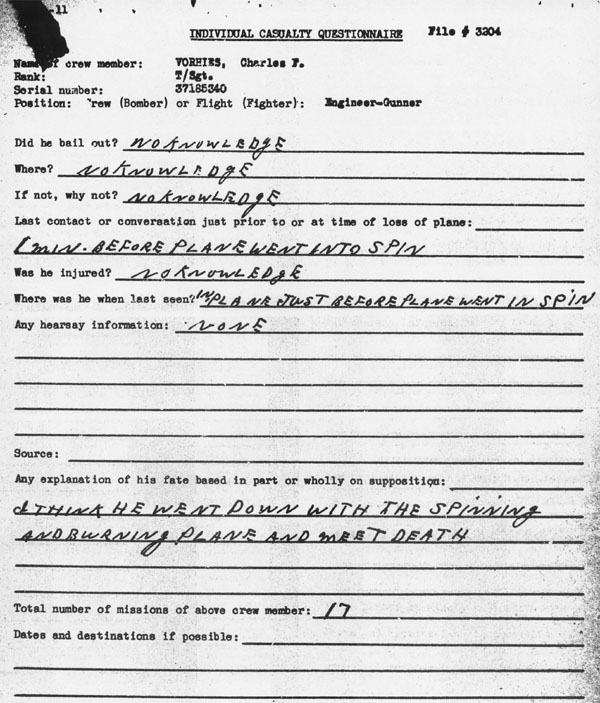 -11
INDIVIDUAL CASUALTY QUESTIONNAIRE File # 3204
Name of crew member: VORHIES, Charles F.
Rank: T/Sgt.
Serial number: 37185340
Position: rew (Bomber) or Flight (Fighter): Engineer-Gunner
Did he bail out? NO KNOWLEDgE
Where? NO KNOWLEDgE
If not, why not? NO KNOWLEDgE
Last contact or conversation just prior to or at time of loss of plane:
1 MIN. BEFORE PLANE WENT INTO SPIN
Was he injured? NO KNOWLEDgE
Where was he when last seen? IN PLANE JUST BEFORE PLANE WENT IN SPIN
Any hearsay information: NONE
Source:
Any explanation of his fate based in part or wholly on supposition:
I THINK HE WENT DOWN WITH THE SPINNINg
AND BURNINg PLANE AND MEET DEATH
Total number of missions of above crew member: 17
Dates and destinations if possible: